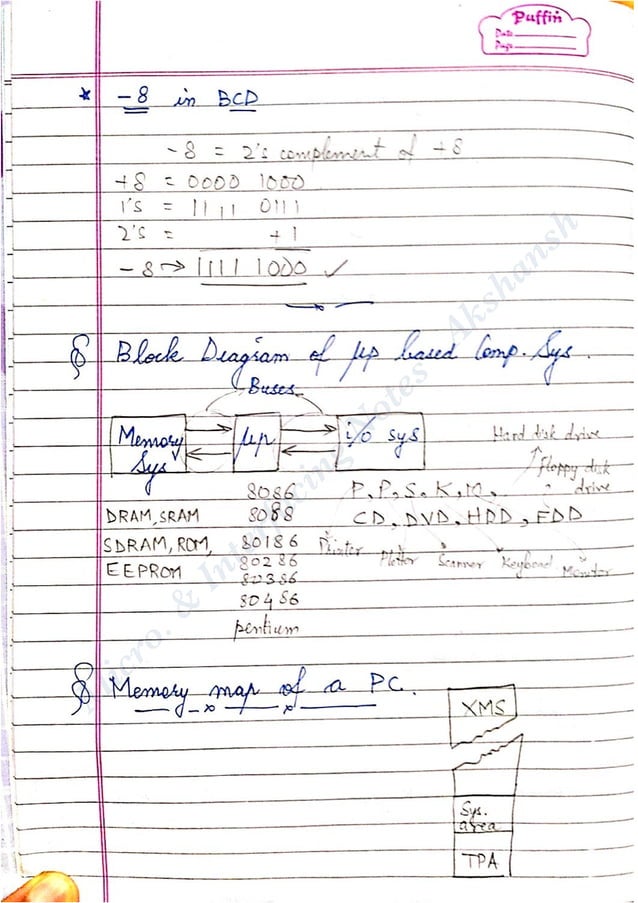 Puffin
Date
Page
* -8 in BCD
-8 = 2's complement of +8
+8 = 0000 1000
1's = 1111 0111
2's = +1
-8 → 1111 1000 ✓
§ Block Diagram of μp based Comp. Sys.
Buses
Memory Sys
μp
i/o sys
Hard disk drive
Floppy disk drive
8086
P, P, S, K, M,
DRAM, SRAM
8088
CD, DVD, HDD, FDD
SDRAM, ROM,
80186
Printer Plotter Scanner Keyboard Monitor
EEPROM
80286
80386
80486
pentium
§ Memory map of a PC.
XMS
Sys. area
TPA
Micro. & Interfacing Notes Akshansh